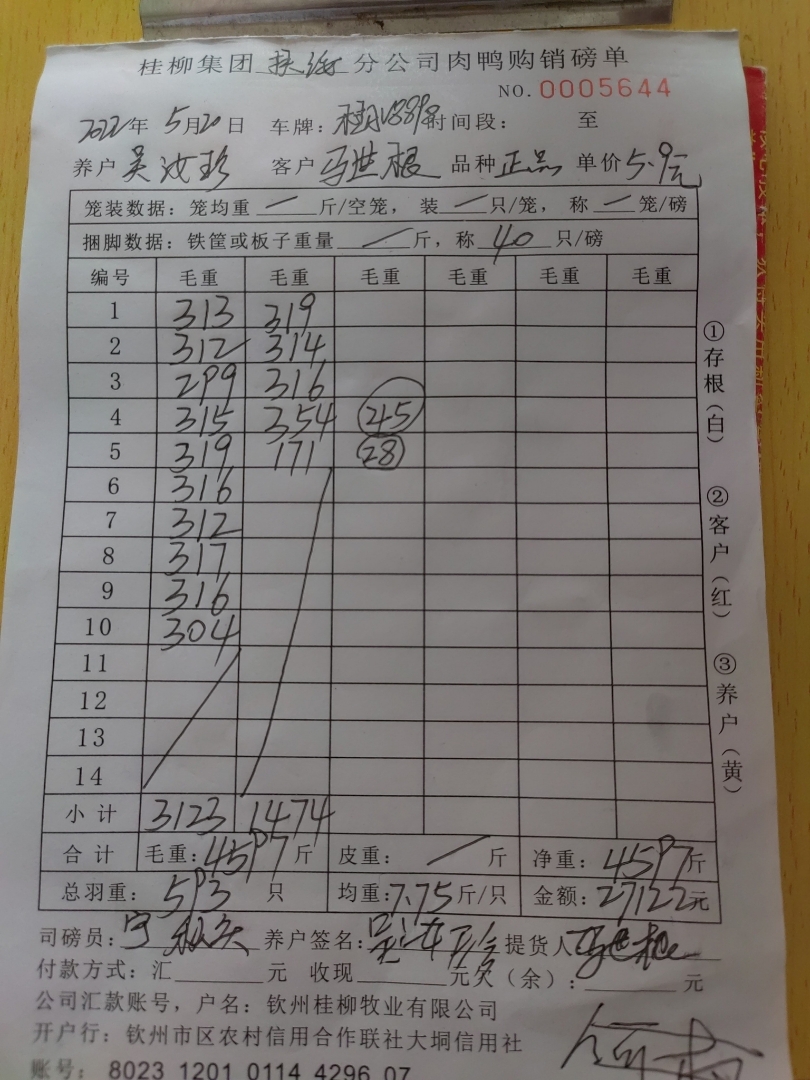 桂柳集团 分公司肉鸭购销磅单
NO. 0005644
2022年 5月20日 车牌: 时间段: 至
养户 吴汝珍 客户 马世根 品种 正品 单价 5.9元
笼装数据: 笼均重 / 斤/空笼, 装 / 只/笼, 称 / 笼/磅
捆脚数据: 铁筐或板子重量 / 斤, 称 40 只/磅
编号 毛重 毛重 毛重 毛重 毛重 毛重
1 313 319
2 312 314
3 299 316
4 315 354 45
5 319 171 28
6 316
7 312
8 317
9 316
10 304
11
12
13
14
小计 3123 1474
合计 毛重: 4597斤 皮重: / 斤 净重: 4597斤
总羽重: 593 只 均重: 7.75斤/只 金额: 27122元
司磅员: 养户签名: 吴汝珍 提货人 马世根
付款方式: 汇 元 收现 元欠(余): 元
公司汇款账号, 户名: 钦州桂柳牧业有限公司
开户行: 钦州市区农村信用合作联社大垌信用社
账号: 8023 1201 0114 4296 07
①存根(白)
②客户(红)
③养户(黄)